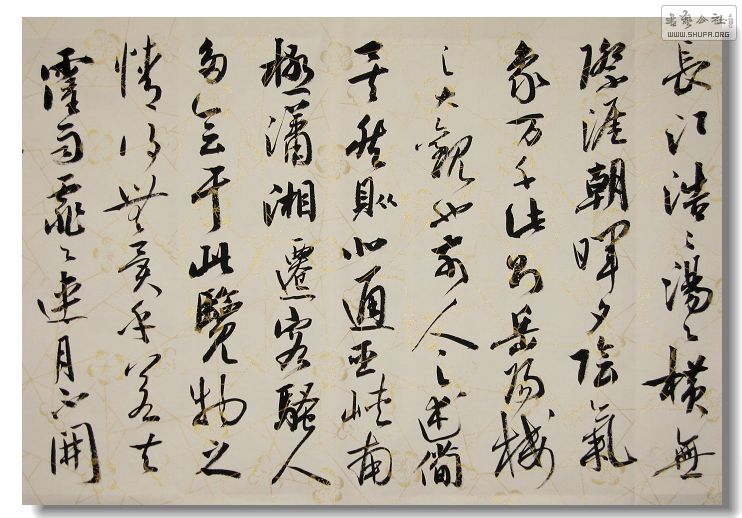 長江浩〻湯〻横無
際涯朝暉夕陰氣
象万千此則岳陽楼
之大觀也前人之述備
矣然則北通巫峽南
極瀟湘遷客騷人
多會于此覽物之
情得無異乎若夫
霪雨霏〻連月不開
书艺公社
WWW.SHUFA.ORG